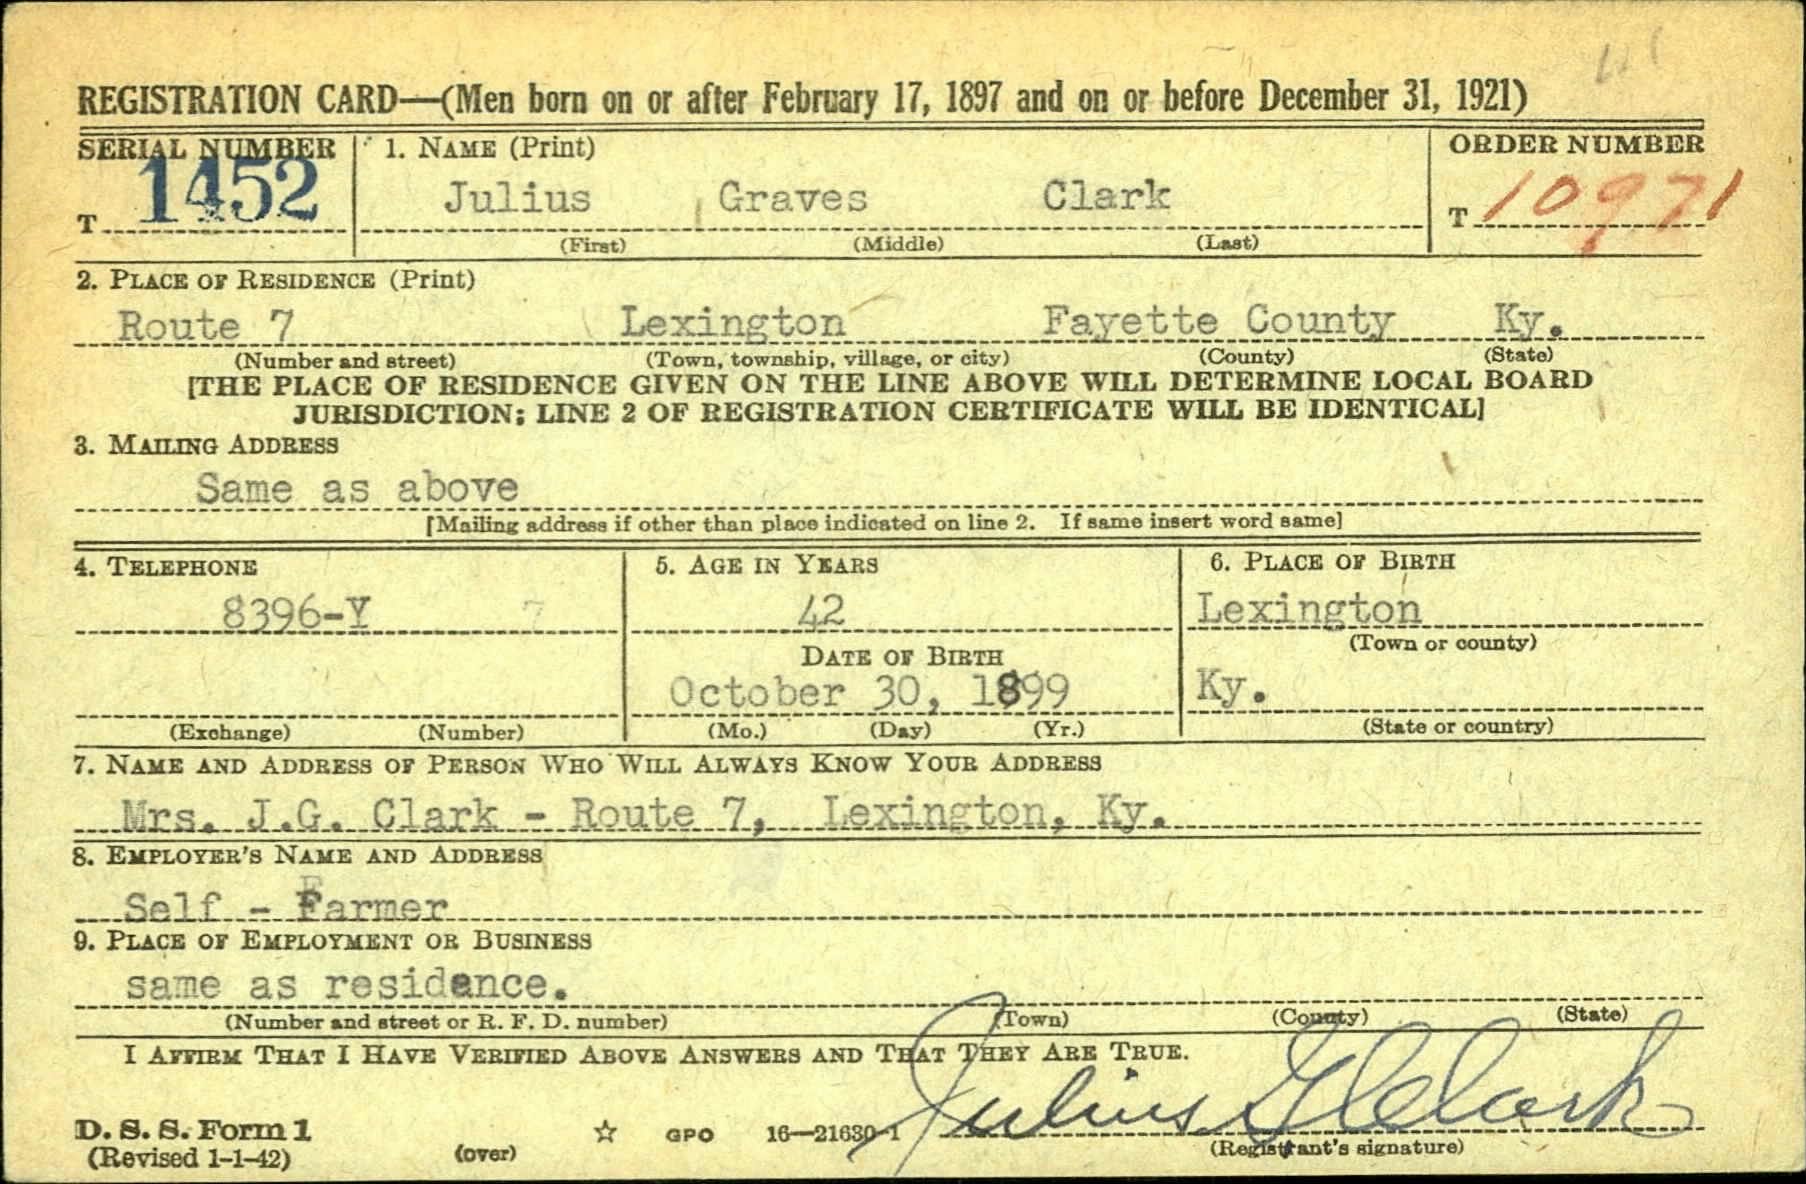 REGISTRATION CARD—(Men born on or after February 17, 1897 and on or before December 31, 1921)
SERIAL NUMBER 1. NAME (Print) ORDER NUMBER
T 1452 Julius Graves Clark T 10971
(First) (Middle) (Last)
2. PLACE OF RESIDENCE (Print)
Route 7 Lexington Fayette County Ky.
(Number and street) (Town, township, village, or city) (County) (State)
[THE PLACE OF RESIDENCE GIVEN ON THE LINE ABOVE WILL DETERMINE LOCAL BOARD
JURISDICTION; LINE 2 OF REGISTRATION CERTIFICATE WILL BE IDENTICAL]
3. MAILING ADDRESS
Same as above
[Mailing address if other than place indicated on line 2. If same insert word same]
4. TELEPHONE 5. AGE IN YEARS 6. PLACE OF BIRTH
8396-Y 7 42 Lexington
(Town or county)
DATE OF BIRTH
October 30, 1899 Ky.
(Exchange) (Number) (Mo.) (Day) (Yr.) (State or country)
7. NAME AND ADDRESS OF PERSON WHO WILL ALWAYS KNOW YOUR ADDRESS
Mrs. J.G. Clark - Route 7, Lexington, Ky.
8. EMPLOYER'S NAME AND ADDRESS
Self - Farmer
9. PLACE OF EMPLOYMENT OR BUSINESS
same as residence.
(Number and street or R. F. D. number) (Town) (County) (State)
I AFFIRM THAT I HAVE VERIFIED ABOVE ANSWERS AND THAT THEY ARE TRUE.
Julius G Clark
D. S. S. Form 1
(Revised 1-1-42) (over) ☆ GPO 16—21630-1 (Registrant's signature)